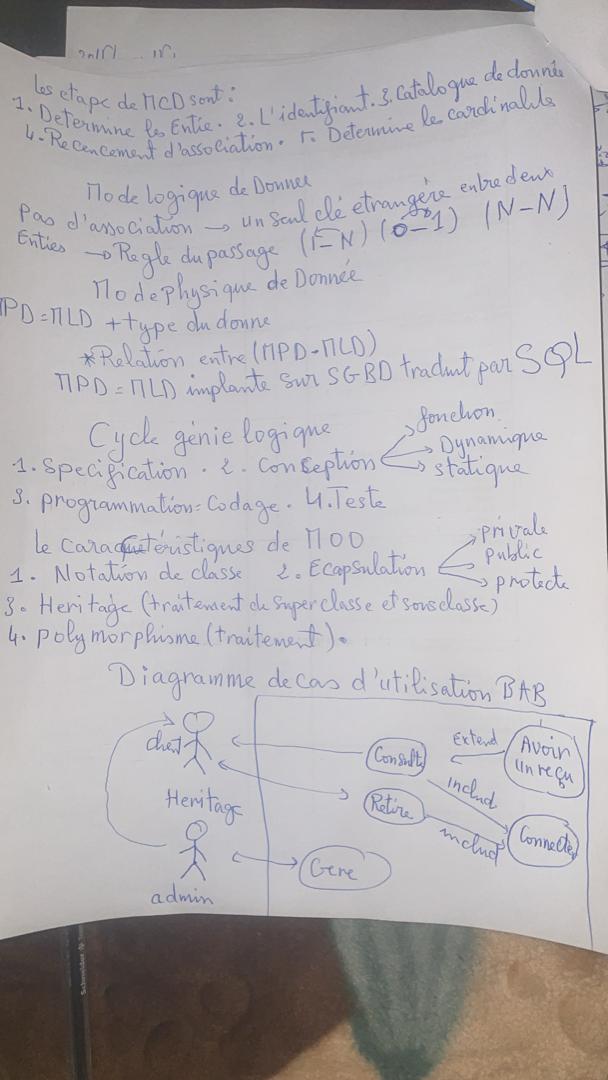 Les etape de MCD sont :
1. Determine les Entie. 2. L'identifiant. 3. Catalogue de donnée
4. Recencement d'association. 5. Determine les cardinalités
Mode logique de Donnee
Pas d'association → un seul clé étrangère entre deux
Enties → Regle du passage (1-N) (0-1) (N-N)
Mode physique de Donnée
MPD = MLD + type du donne
*Relation entre (MPD-MLD)
MPD = MLD implante sur SGBD traduit par SQL
Cycle génie logique
fonction
1. Specification. 2. Conception Dynamique
statique
3. programmation = Codage. 4. Teste
le caractéristiques de MOO
private
1. Notation de classe 2. Ecapsulation public
protecte
3. Heritage (traitement du superclasse et sousclasse)
4. polymorphisme (traitement).
Diagramme de cas d'utilisation BAB
client
Consulte
Extend
Avoir
un reçu
Heritage
Retire
Includ
includ
Connecter
Gere
admin
Schneider